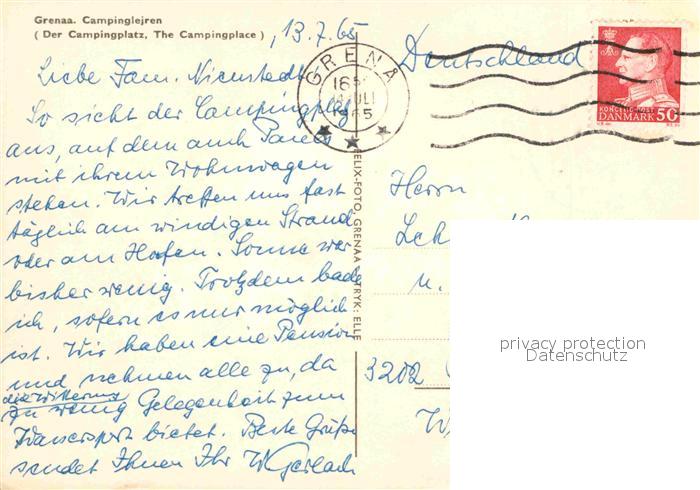 Grenaa. Campinglejren
( Der Campingplatz, The Campingplace )
, 13.7.65
Liebe Fam. Nienstedt
So sieht der Campingplatz
aus, auf dem auch
mit ihrem Wohnwagen
stehen. Wir treffen uns fast
täglich am windigen Strand
oder am Hafen. Sonne war
bisher wenig. Trotzdem bade
ich, sofern es nur möglich
ist. Wir haben eine Pension
und nehmen alle zu, da
die Witterung
zu wenig Gelegenheit zum
Wassersport bietet. Beste Grüße
sendet Ihnen Ihr W. Gerlach
FELIX-FOTO, GRENAA - TRYK: ELLE
GRENÅ
16
JULI
1965
KONGELIG POST
DANMARK 50
Deutschland
Herrn
u.
3202
privacy protection
Datenschutz